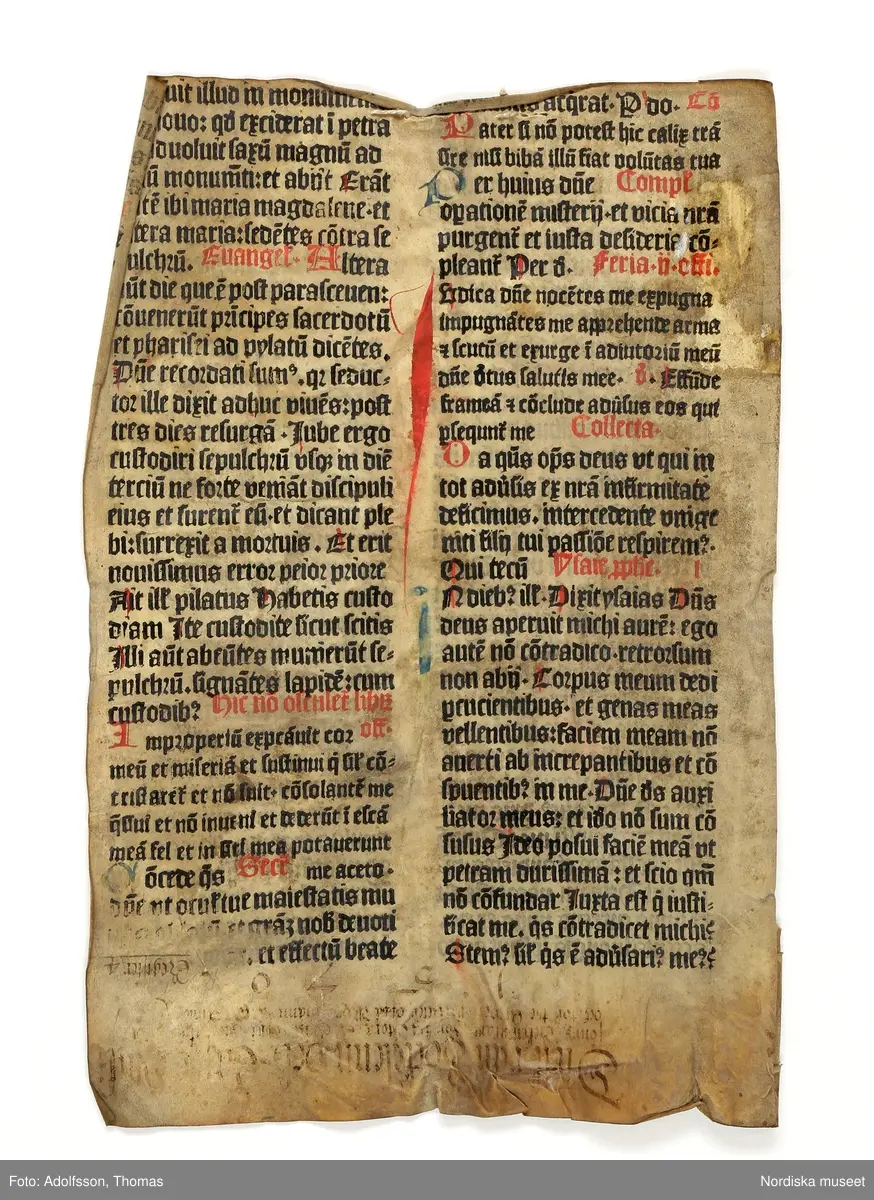 uit illud in monumen
ouo: qd̄ exciderat ī petra
duoluit saxū magnū ad
iū monumt̄i: et abijt Erāt
tē ibi maria magdalene· et
tera maria: sedētes cōtra se
pulchrū. Euangeł· Altera
aūt die que ē post parasceuen:
cōuenerūt prīcipes sacerdotū
et pharisei ad pylatū dicētes.
Dn̄e recordati sumꝰ. qr seduc-
tor ille dixit adhuc viuēs: post
tres dies resurgā · Jube ergo
custodiri sepulchrū vsqꝫ in diē
terciū ne forte veniāt discipuli
eius et furent̄ eū· et dicant ple
bi: surrexit a mortuis . Et erit
nouissimus error peior priore
Ait ill̄ pilatus Habetis custo
diam Ite custodite sicut scitis
Illi aūt abeūtes munierūt se-
pulchrū. signātes lapidē: cum
custodibꝰ Hic nō osculet̄ libꝛ
Improperiū expc̄auit cor off.
meū et miseriā et sustinui q̄ sil̄ cō-
tristaret̄ et nō fuit· cōsolantē me
q̄siui et nō inueni et dederūt ī escā
meā fel et in siti mea potauerunt
Cōcede q̄s Secr̄ me aceto·
dn̄e vt ocul̄ tue maiestatis mu
et grāꝫ nob̄ deuoti
, et effectū beate
Register
acq̄rat· P do· Cō
Pater si nō potest hic calix trā
sire nisi bibā illū fiat volūtas tua
Per huius dn̄e Compl̄
opationē misterij· et vicia nrā
purgent̄ et iusta desideria cō-
pleant̄ Per d̄. Feria ·ij· offi.
Iudica dn̄e nocētes me expugna
impugnātes me apprehende arma
⁊ scutū et exurge ī adiutoriū meū
dn̄e v̄tus salutis mee· v̄· Effūde
frameā ⁊ cōclude adūsus eos qui
ꝓsequunt̄ me Collecta·
Da q̄s om̄ps deus vt qui in
tot adūsis ex nrā infirmitate
deficimus. intercedente vnige
niti filij tui passiōe respiremꝰ·
Qui tecū Ysaie ꝓphe· l
In diebꝰ ill̄· Dixit ysaias Dn̄s
deus aperuit michi aurē: ego
autē nō cōtradico· retrorsum
non abij· Corpus meum dedi
ꝑcucientibus· et genas meas
vellentibus: faciem meam nō
auerti ab increpantibus et cō
spuentibꝰ in me· Dn̄e d̄s auxi
liator meus: et ido nō sum cō
fusus Ideo posui faciē meā vt
petram durissimā: et scio qm̄
nō cōfundar Juxta est q̄ iusti-
ficat me. q̄s cōtradicet michi?
Stemꝰ sil̄ q̄s ē adūsariꝰ meꝰ?
Foto: Adolfsson, Thomas
Nordiska museet